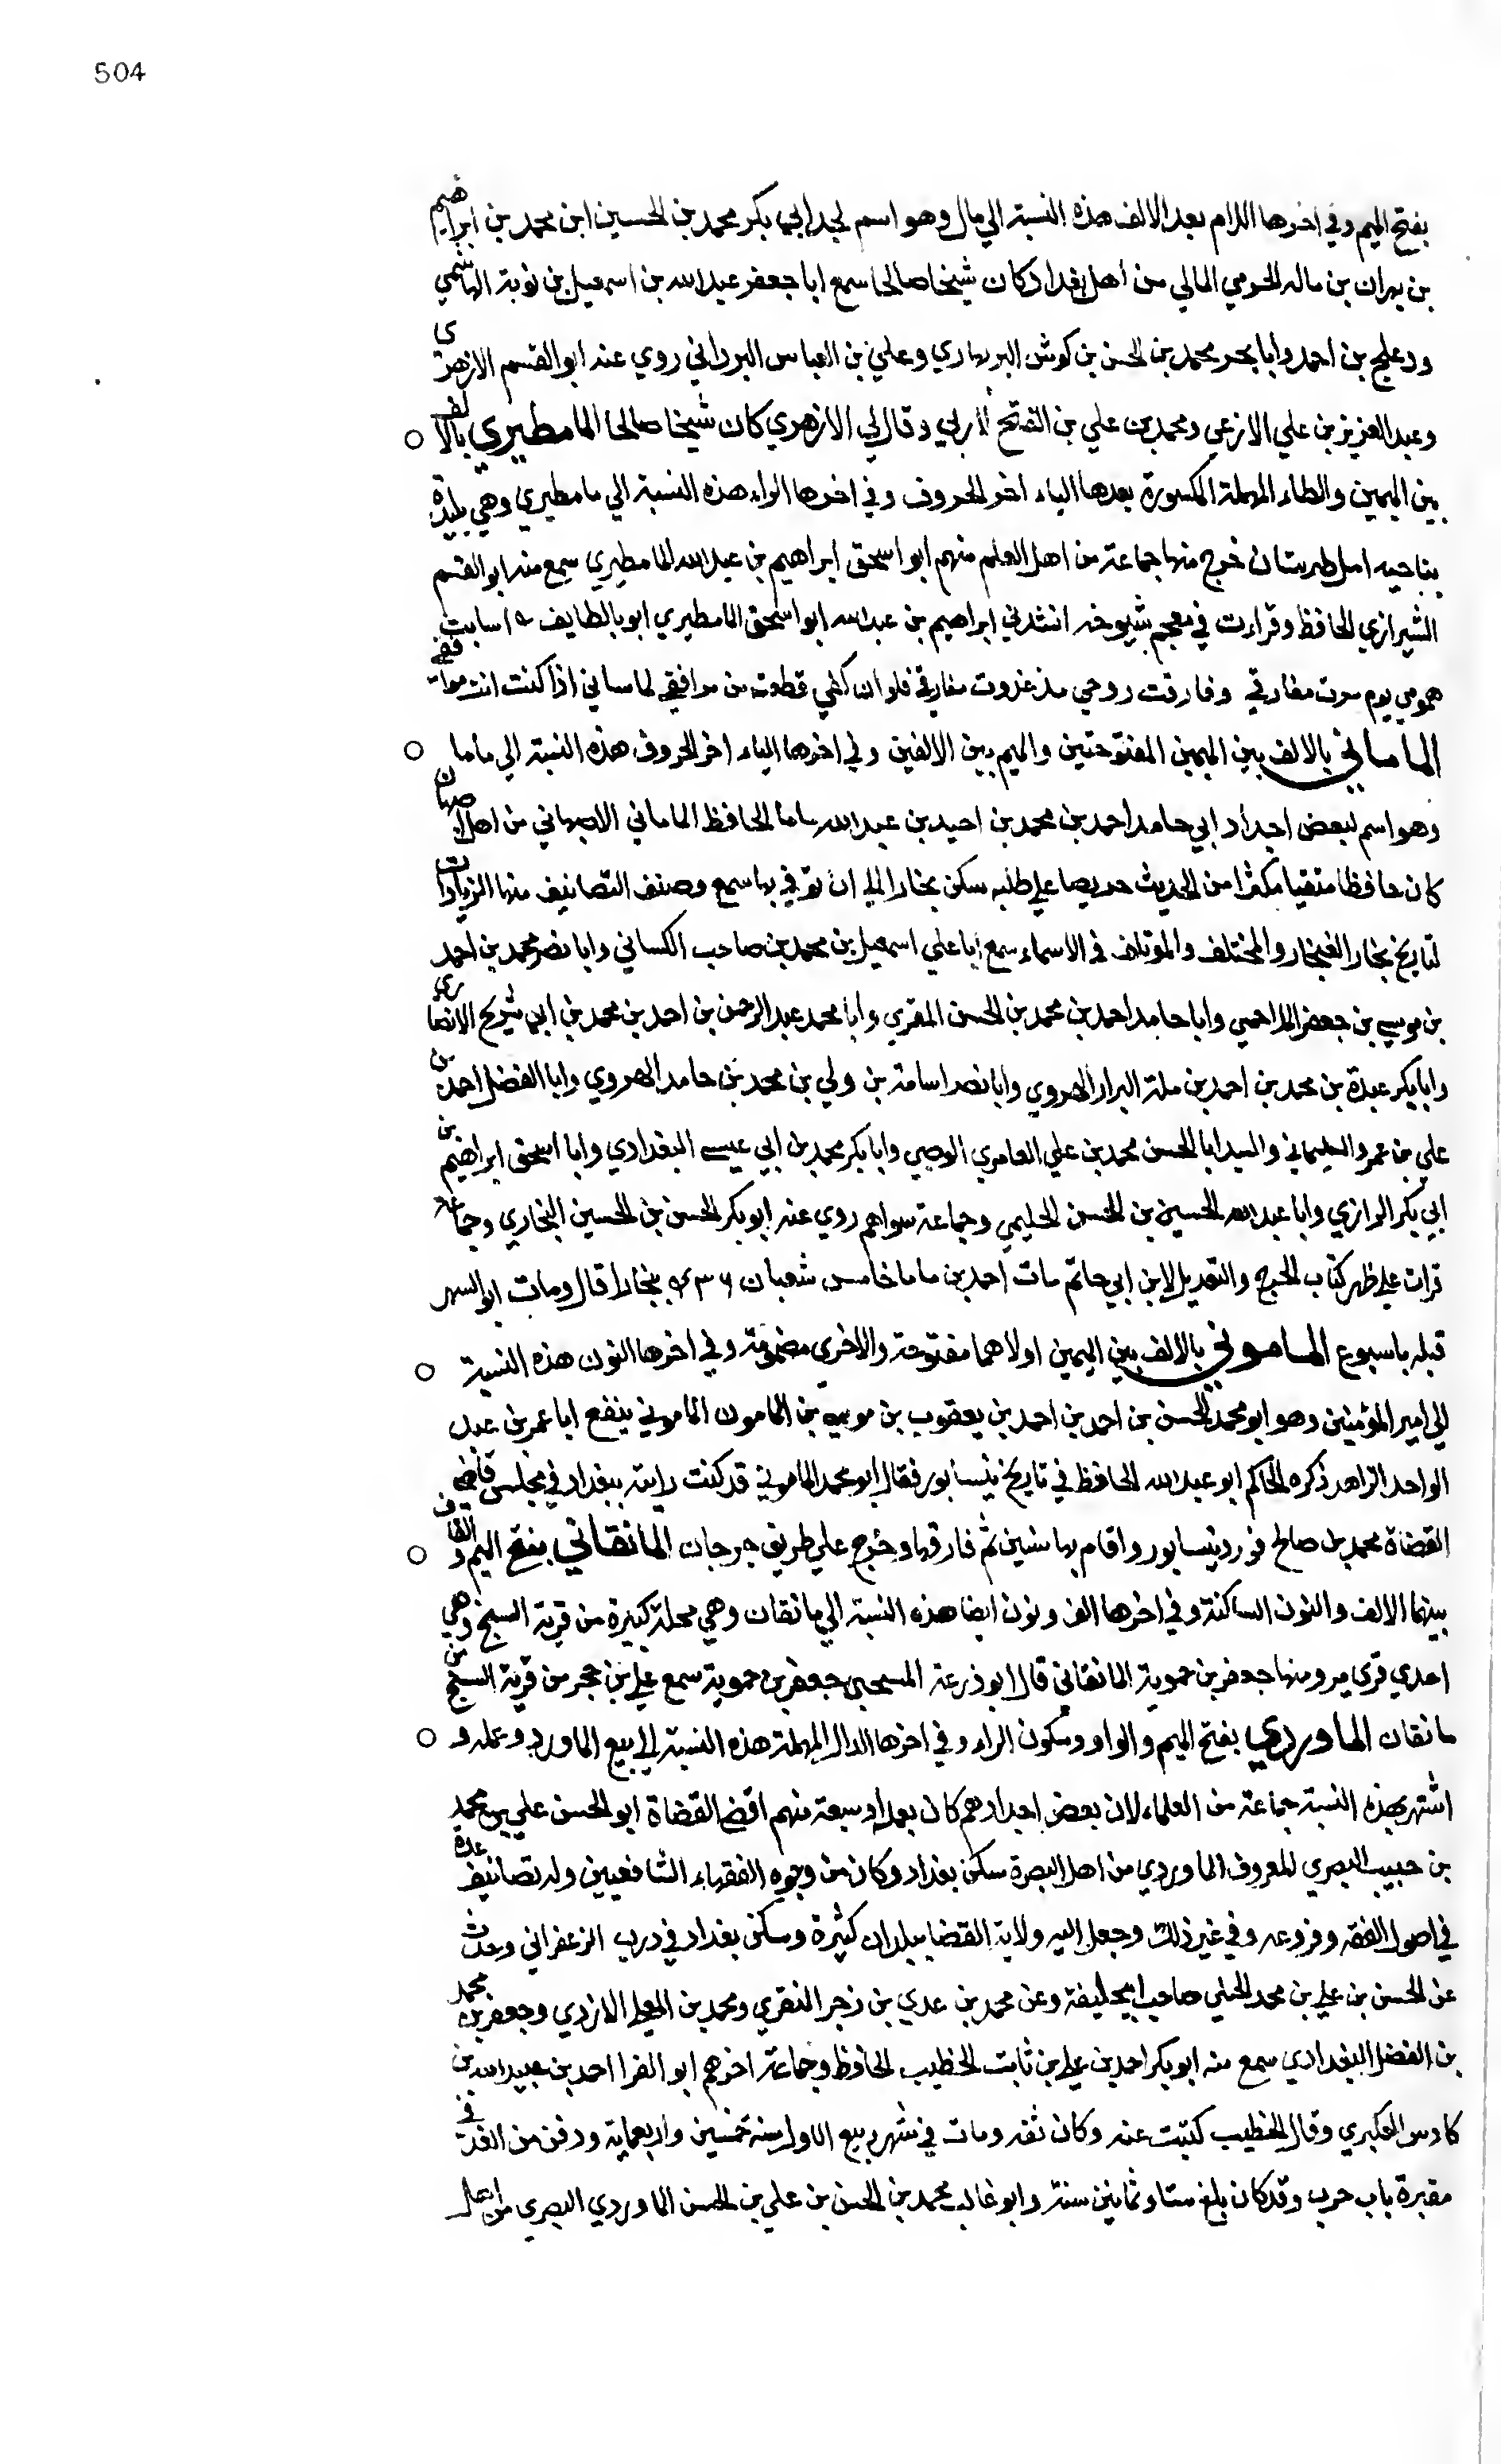 504
بفتح الميم وفي اخرها اللام بعد الالف هذه النسبة الي مال وهو اسم لجد ابي بكر محمد بن الحسين ابن محمد بن ابراهيم
بن مهران بن ماله الحرمي المالي من اهل بغداد كان شيخا صالحا سمع ابا جعفر عبد الله بن اسمعيل بن توبة الهاشمي
ودعلج بن احمد وابا بحر محمد بن الحسن بن كوثر البربهاري وعلي بن العباس البرداني روي عنه ابو القسم الازهري
وعبد العزيز بن علي الازجي ومحمد بن علي بن الفتح الحربي وقال لي الازهري كان شيخا صالحا المامطيري بالالف
بين الميمين والطاء المهملة المكسورة بعدها الياء اخر الحروف وفي اخرها الراء هذه النسبة الي مامطيري وهي بليدة
بناحيه امل طبرستان خرج منها جماعة من اهل العلم منهم ابو اسحق ابراهيم بن عبد الله المامطيري سمع منه ابو القسم
الشيرازي الحافظ وقراءت في معجم شيوخه انشدني ابراهيم بن عبد الله ابو اسحق المامطيري ابو بالطايف
همومي يوم سرت مفارقي وفارقت روحي مذ غدوت مفارقي فلو ان كفي قطعت من مرافقي لما ساني اذا كنت انت موافقي
الماماني بالالف بين الميمين المفتوحتين والميم بين الالفين وفي اخرها الياء اخر الحروف هذه النسبة الي ماما
وهو اسم لبعض اجداد ابي حامد احمد بن محمد بن احيد بن عبد الله ماما الحافظ الماماني الاصبهاني من اهل اصبهان
كان حافظا متقيا مكثرا من الحديث حريصا علي طلبه سكن بخارا الي ان توفي بها سمع وصنف التصانيف منها الزيادات
لتاريخ بخارا لغنجار والمختلف والموتلف في الاسماء سمع ابا علي اسمعيل بن محمد بن صاحب الكساني وابا نصر محمد بن احمد
بن موسي بن جعفر الملاحمي وابا حامد احمد بن محمد بن الحسن المقري وابا محمد عبد الرحمن بن احمد بن محمد بن ابي شريح الانصاري
وابا بكر عبدة بن محمد بن احمد بن ملة البزار الهروي وابا نصر اسامة بن ولي بن محمد بن حامد الهروي وابا الفضل احمد بن
علي بن عمرو السليماني والسيد ابا الحسن محمد بن علي العامري الوصي وابا بكر محمد بن ابي عيسي البغدادي وابا اسحق ابراهيم بن
ابي بكر الرازي وابا عبد الله الحسين بن الحسن الحليمي وجماعة سواهم روي عنه ابو بكر الحسن بن الحسين البخاري وجماعة
قرات علي ظهر كتاب الجرح والتعديل لابن ابي حاتم مات احمد بن ماما خامس شعبان بخارا قال ومات ابو السهر
قبله باسبوع المـامـوني بالالف بين الميمين اولاهما مفتوحة والاخري مضمومة وفي اخرها النون هذه النسبة
الي امير المؤمنين وهو ابو محمد الحسن بن احمد بن احمد بن يعقوب بن موسي بن المامون الماموني ينفع ابا عمر بن عبد
الواحد الزاهد ذكره الحاكم ابو عبد الله الحافظ في تاريخ نيسابور فقال ابو محمد الماموني قد كنت رايته ببغداد في مجلس قاضي
القضاة محمد بن صالح فورد نيسابور واقام بها سنين ثم فارقها وخرج علي طريق جرجان المانقاني بفتح الميم والقاف
بينهما الالف والنون الساكنة وفي اخرها الف ونون ايضا هذه النسبة الي مانقان وهي محلة كبيرة من قرية السنج وهي
احدي قري مرو منها جعفر بن حموية المانقاني قال ابو زرعة السنجي جعفر بن حموية سمع علي بن حجر من قرية السنج من
مانقان الماوردي بفتح الميم والواو وسكون الراء وفي اخرها الدال المهملة هذه النسبة الي بيع الماورد وعمله و
اشتهر بهذه النسبة جماعة من العلماء لان بعض اجدادهم كان يعمله او يبيعه منهم اقضي القضاة ابو الحسن علي بن محمد
بن حبيب البصري المعروف الماوردي من اهل البصرة سكن بغداد وكان من وجوه الفقهاء الشافعيين وله تصانيف عدة
في اصول الفقه وفروعه وفي غير ذلك وجعل اليه ولاية القضا ببلدان كثيرة وسكن بغداد في درب الزعفراني وحدث
عن الحسن بن علي بن محمد الجبلي صاحب ابي خليفة وعن محمد بن عدي بن زحر المنقري ومحمد بن المعلي الازدي وجعفر بن محمد
بن الفضل البغدادي سمع منه ابو بكر احمد بن علي بن ثابت الخطيب الحافظ وجماعة اخرهم ابو الفرا احمد بن عبيد الله بن
كادس العكبري وقال الخطيب كتبت عنه وكان ثقة ومات في شهر ربيع الاول سنة خمسين واربعماية ودفن من الغد في
مقبرة باب حرب وقد كان بلغ ستا وثمانين سنة وابو غالب محمد بن الحسن بن علي بن الحسن الماوردي البصري من اهل